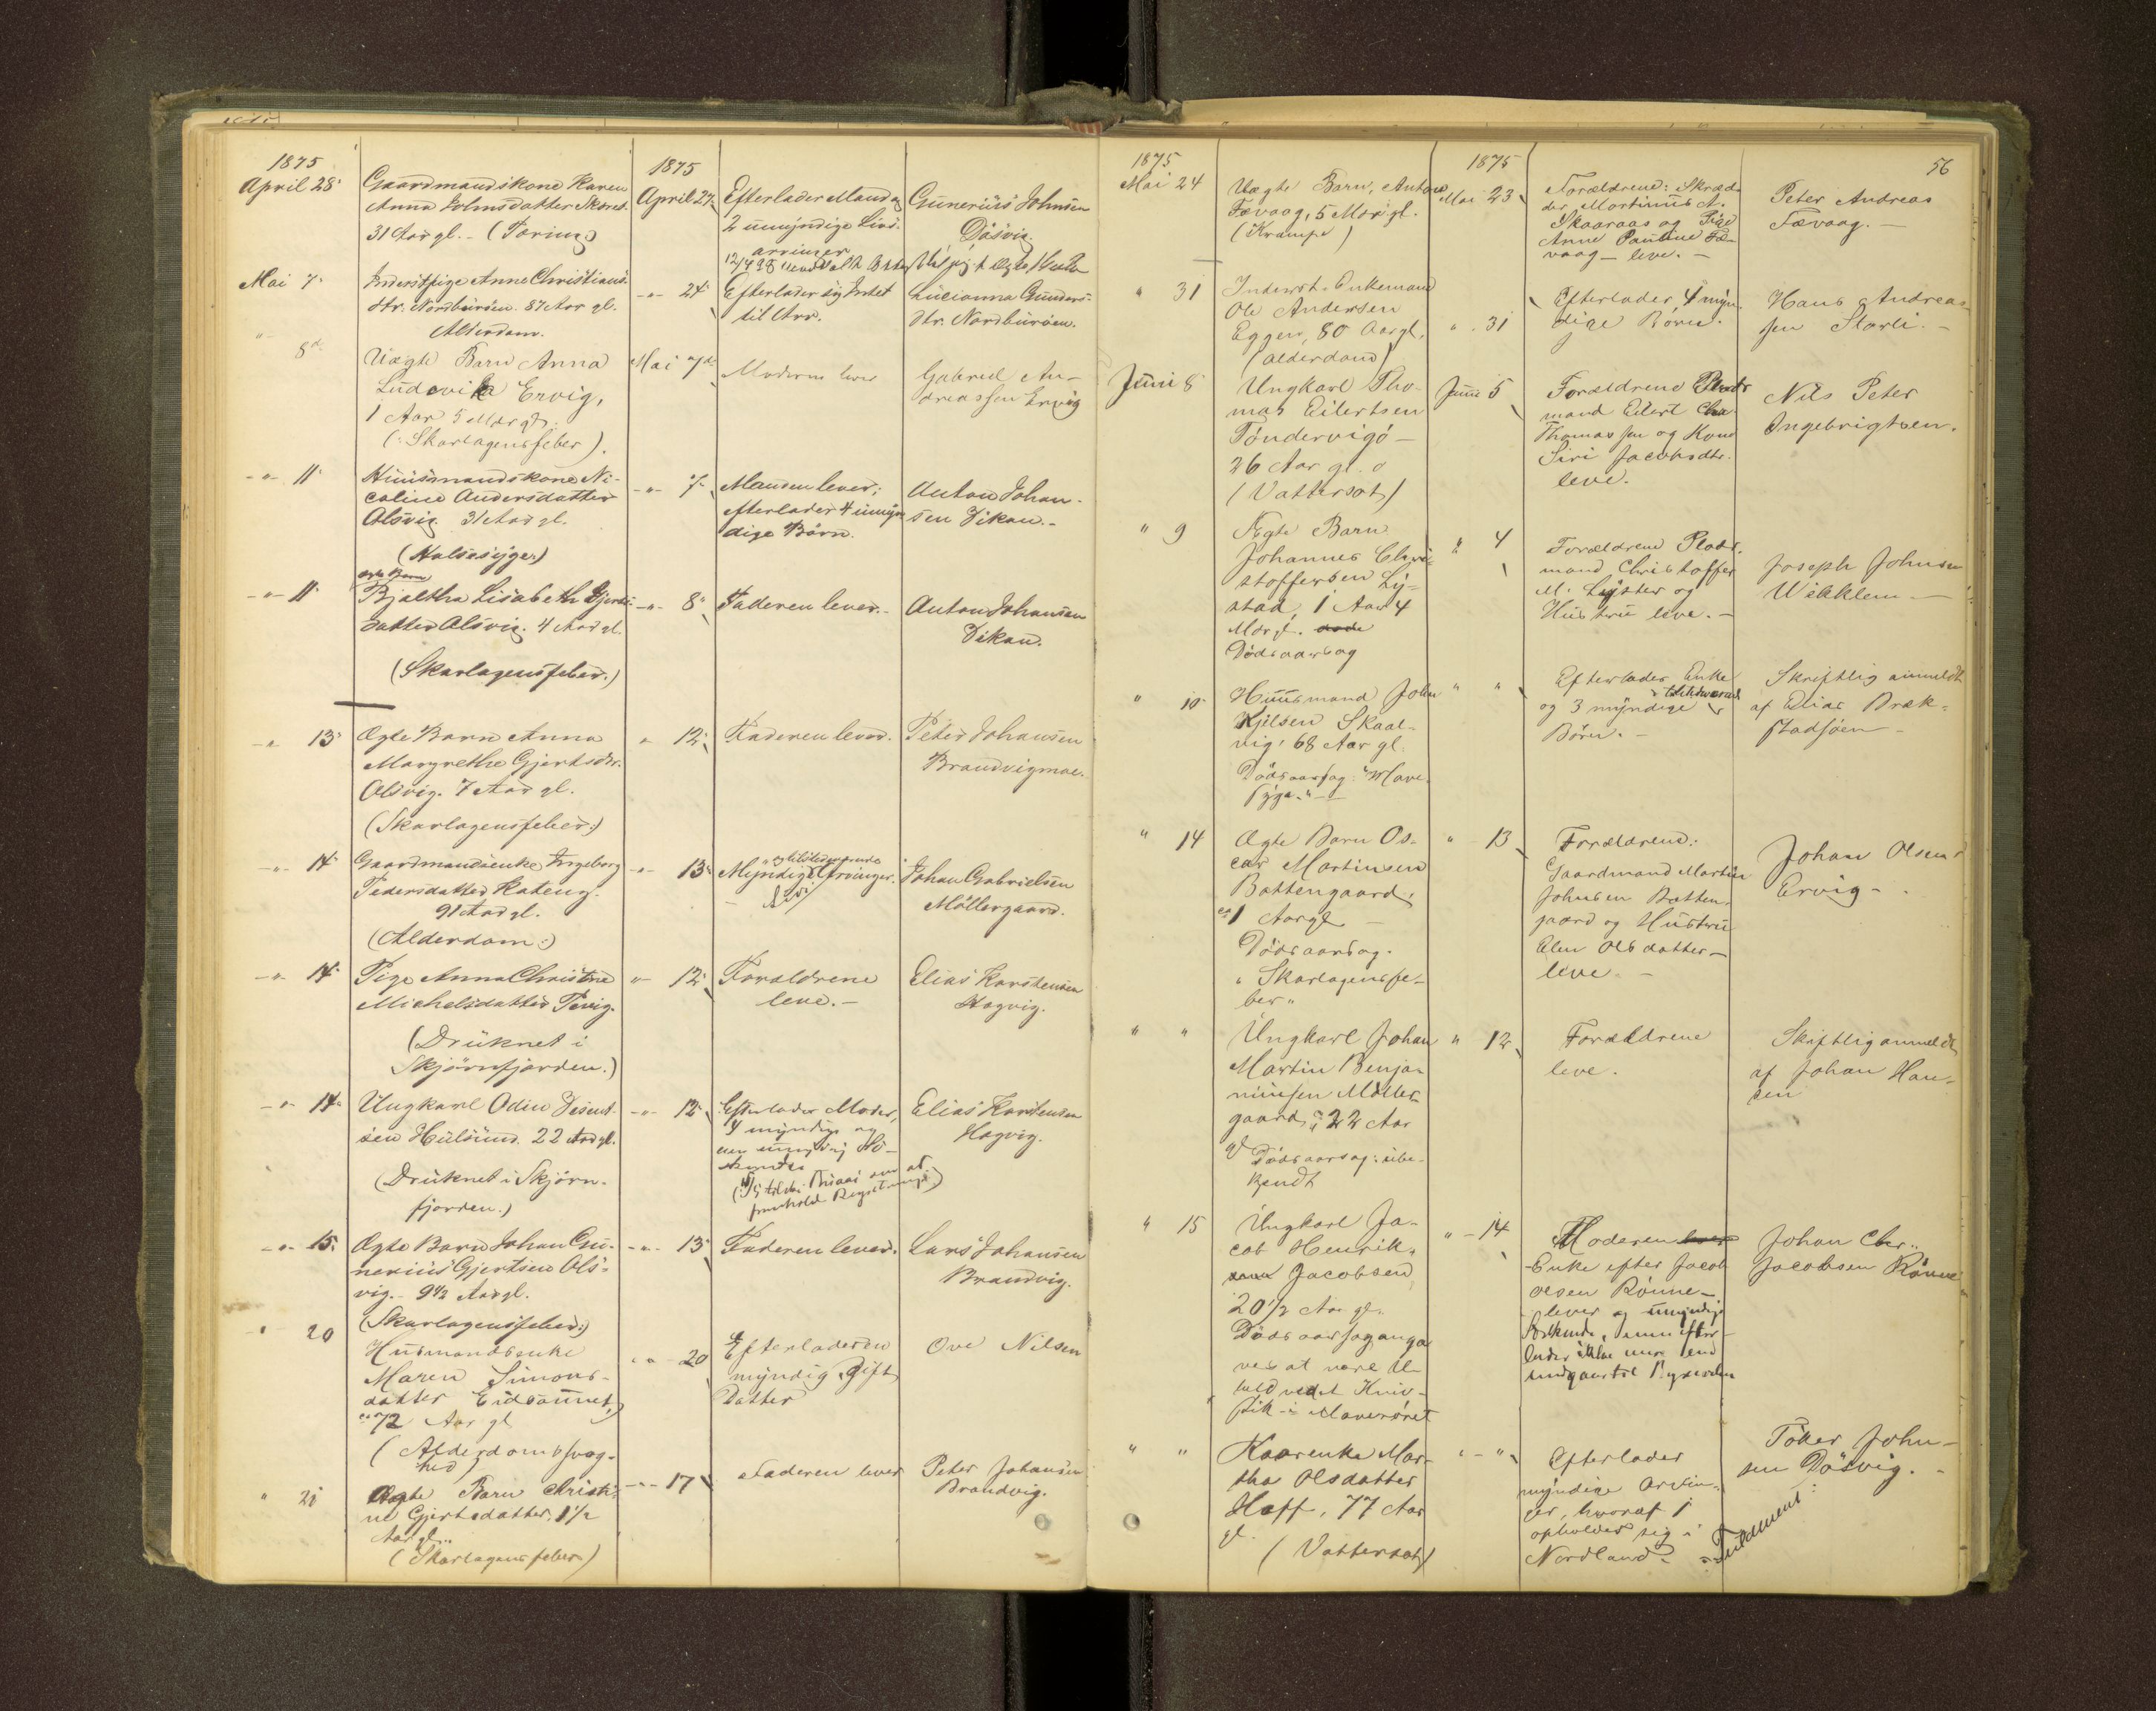 1875
1875
April 28
Gaardmandskone Karen
Anna Johnsdatter
31 Aar gl. - (Tæring)
April 27
Efterlader Mand og
2 umyndige Livs-
arvinger
Gunerius Johnsen
Døsvig
Mai 7
Inderstpige Anne Christians-
dtr. Nordburøen. 87 Aar gl.
Alderdom.
-"- 24
Efterlader sig Intet
til Arv.
Lucianna Gunders-
dtr. Nordburøen.
" 8de
Uægte Barn Anna
Ludovika Ervig,
1 Aar 5 Mdr gl.
(: Skarlagensfeber).
Mai 7de
Moderen lever
Gabriel An-
dreassen Ervig
-"- 11
Huusmandskone Ni-
coline Andersdatter
Olsvig. 31 Aar gl.
(Halssyge:)
-"- 7
Manden lever;
efterlader 4 umyn
dige Børn.
Anton Johan-
sen Dikan.-
-"- 11
ægte Barn
Bjaltha Lisabeth Gjerts-
datter Olsvig. 4 Aar gl.
(Skarlagensfeber.)
-"- 8
Faderen lever.-
Anton Johansen
Dikan.
-"- 13
Ægte Barn Anna
Margrethe Gjertsdtr.
Olsvig. 7 Aar gl.
(Skarlagensfeber:)
" 12
Faderen lever.
Peter Johansen
Brandvigmoe.
-"- 14
Gaardmandsenke Ingeborg
Pedersdatter Kateng.
91 Aar gl.
(Alderdom:)
-"- 13
og tilstedeværende
Myndige Arvinger.
Johan Gabrielsen
Møllergaard.
-"- 14
Pige Anna Christine
Michelsdatter Tevig.
(Druknet i
Skjørnfjorden.)
" 12
Forældrene
leve.-
Elias Karstensen
Hogvig.
-"- 14
Ungkarl Odin Disent-
sen Hulsund. 22 Aar gl.
(Druknet i Skjørn-
fjorden.)
-"- 12
Efterlader Moder,
4 myndige og
een umyndig Sø-
skende
Elias Karstensen
Hogvig.
-"- 15
Ægte Barn Johan Gu-
nerius Gjertsen Ols-
vig. - 9½ Aar gl.
(Skarlagensfeber:)
-"- 13
Faderen lever.
Lars Johansen
Brandvig.
" 20
Husmandsenke
Maren Simons-
datter Eidsaunet,
ca 72 Aar gl
(Alderdomssvag-
hed)
" " 20
Efterlader en
myndig gift
Datter
Ove Nilsen
" 21
Ægte Barn Christi-
ne Gjertsdatter, 1½
Aar gl..
(Skarlagensfeber)
-"- 17
Faderen lever
Peter Johansen
Brandvig.
56
1875
1875
Mai 24
Uægte Barn, Antone
Fævaag, 5 Mdr gl.
(Krampe)
Mai 23
Forældrene: Skræd-
der Martinus A.
Skaaraas og Pige
Anne Pauline Fæ-
vaag - leve. -
Peter Andreas
Fævaag. -
" 31
Inderst-Enkemand
Ole Andersen
Eggen, 80 Aar gl.
(Alderdom)
" 31
Efterlader 4 myn-
dige Børn.
Hans Andreas-
sen Storli. -
Juni 8
Ungkarl Tho-
mas Eilertsen
Tøndervigø -
26 Aar gl.
(Vattersot)
Juni 5
Forældrene Plads
mand Eilert
Thomassen og Kone
Siri Jacobsdtr.
leve.
Nils Peter
Ingebrigtsen.
" 9
Ægte Barn
Johannes Chri-
stoffersen Ly-
stad, 1 Aar 4
Mdr gl.
Dødsaarsag
" 4
Forældrene Plads-
mand Christoffer
M. Lyster og
Hustru leve. -
Joseph Johnsen
Wikklem -
" 10
Huusmand John
Kjelsen Skaal-
vig, 68 Aar gl.
Dødsaarsag: "Mave-
syge." -
" "
Efterlader Enke
og 3 myndige
Børn. -
Skriftlig anmeldt
af Elias Bræk-
stadsøen -
" 14
Ægte Barn Os-
car Martinsen
Battengaard,
ca 1 Aar gl -
Dødsaarsag.
" Skarlagensfe-
ber "
" 13
Forældrene:
Gaardmand Martin
Johnsen Batten-
gaard og Hustru
Elen Olsdatter -
leve. -
Johan Olsen
Ervig -
" "
Ungkarl Johan
Martin Benja-
minsen Møller-
gaard, 22 Aar
gl
Dødsaarsag: ube-
kjendt
" 12
Forældrene
leve.
Skriftlig anmeldt
af Johan Han-
sen
" 15
Ungkarl Ja-
cob Henrik
Jacobsen
20½ Aar gl.
Dødsaarsag anga
ves at være U
held ved et Kniv-
stik i Maverøret
" - 14
Moderen
Enke efter Jacob
Olsen Rønne -
lever og umyndige
Søskende,
Johan Chr.
Jacobsen Rønne
" "
Kaarenke Mar-
tha Olsdatter
Hoff, 77 Aar
gl.
(Vattersot)
" - "
Efterlader
myndige Arvin-
ger, hvoraf 1
opholder sig i
Nordland.
Töller John-
sen Døsvig. -
Testament